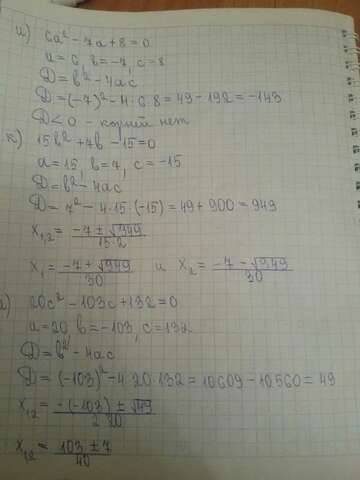 и) 6a² - 7a + 8 = 0
a = 6, b = -7, c = 8
D = b² - 4ac
D = (-7)² - 4·6·8 = 49 - 192 = -143
D < 0 - корней нет
к) 15b² + 7b - 15 = 0
a = 15, b = 7, c = -15
D = b² - 4ac
D = 7² - 4·15·(-15) = 49 + 900 = 949
x₁,₂ = (-7 ± √949)/(15·2)
x₁ = (-7 + √949)/30 и x₂ = (-7 - √949)/30
л) 20c² - 103c + 132 = 0
a = 20 b = -103, c = 132
D = b² - 4ac
D = (-103)² - 4·20·132 = 10609 - 10560 = 49
x₁,₂ = (-(-103) ± √49)/(2·20)
x₁,₂ = (103 ± 7)/40